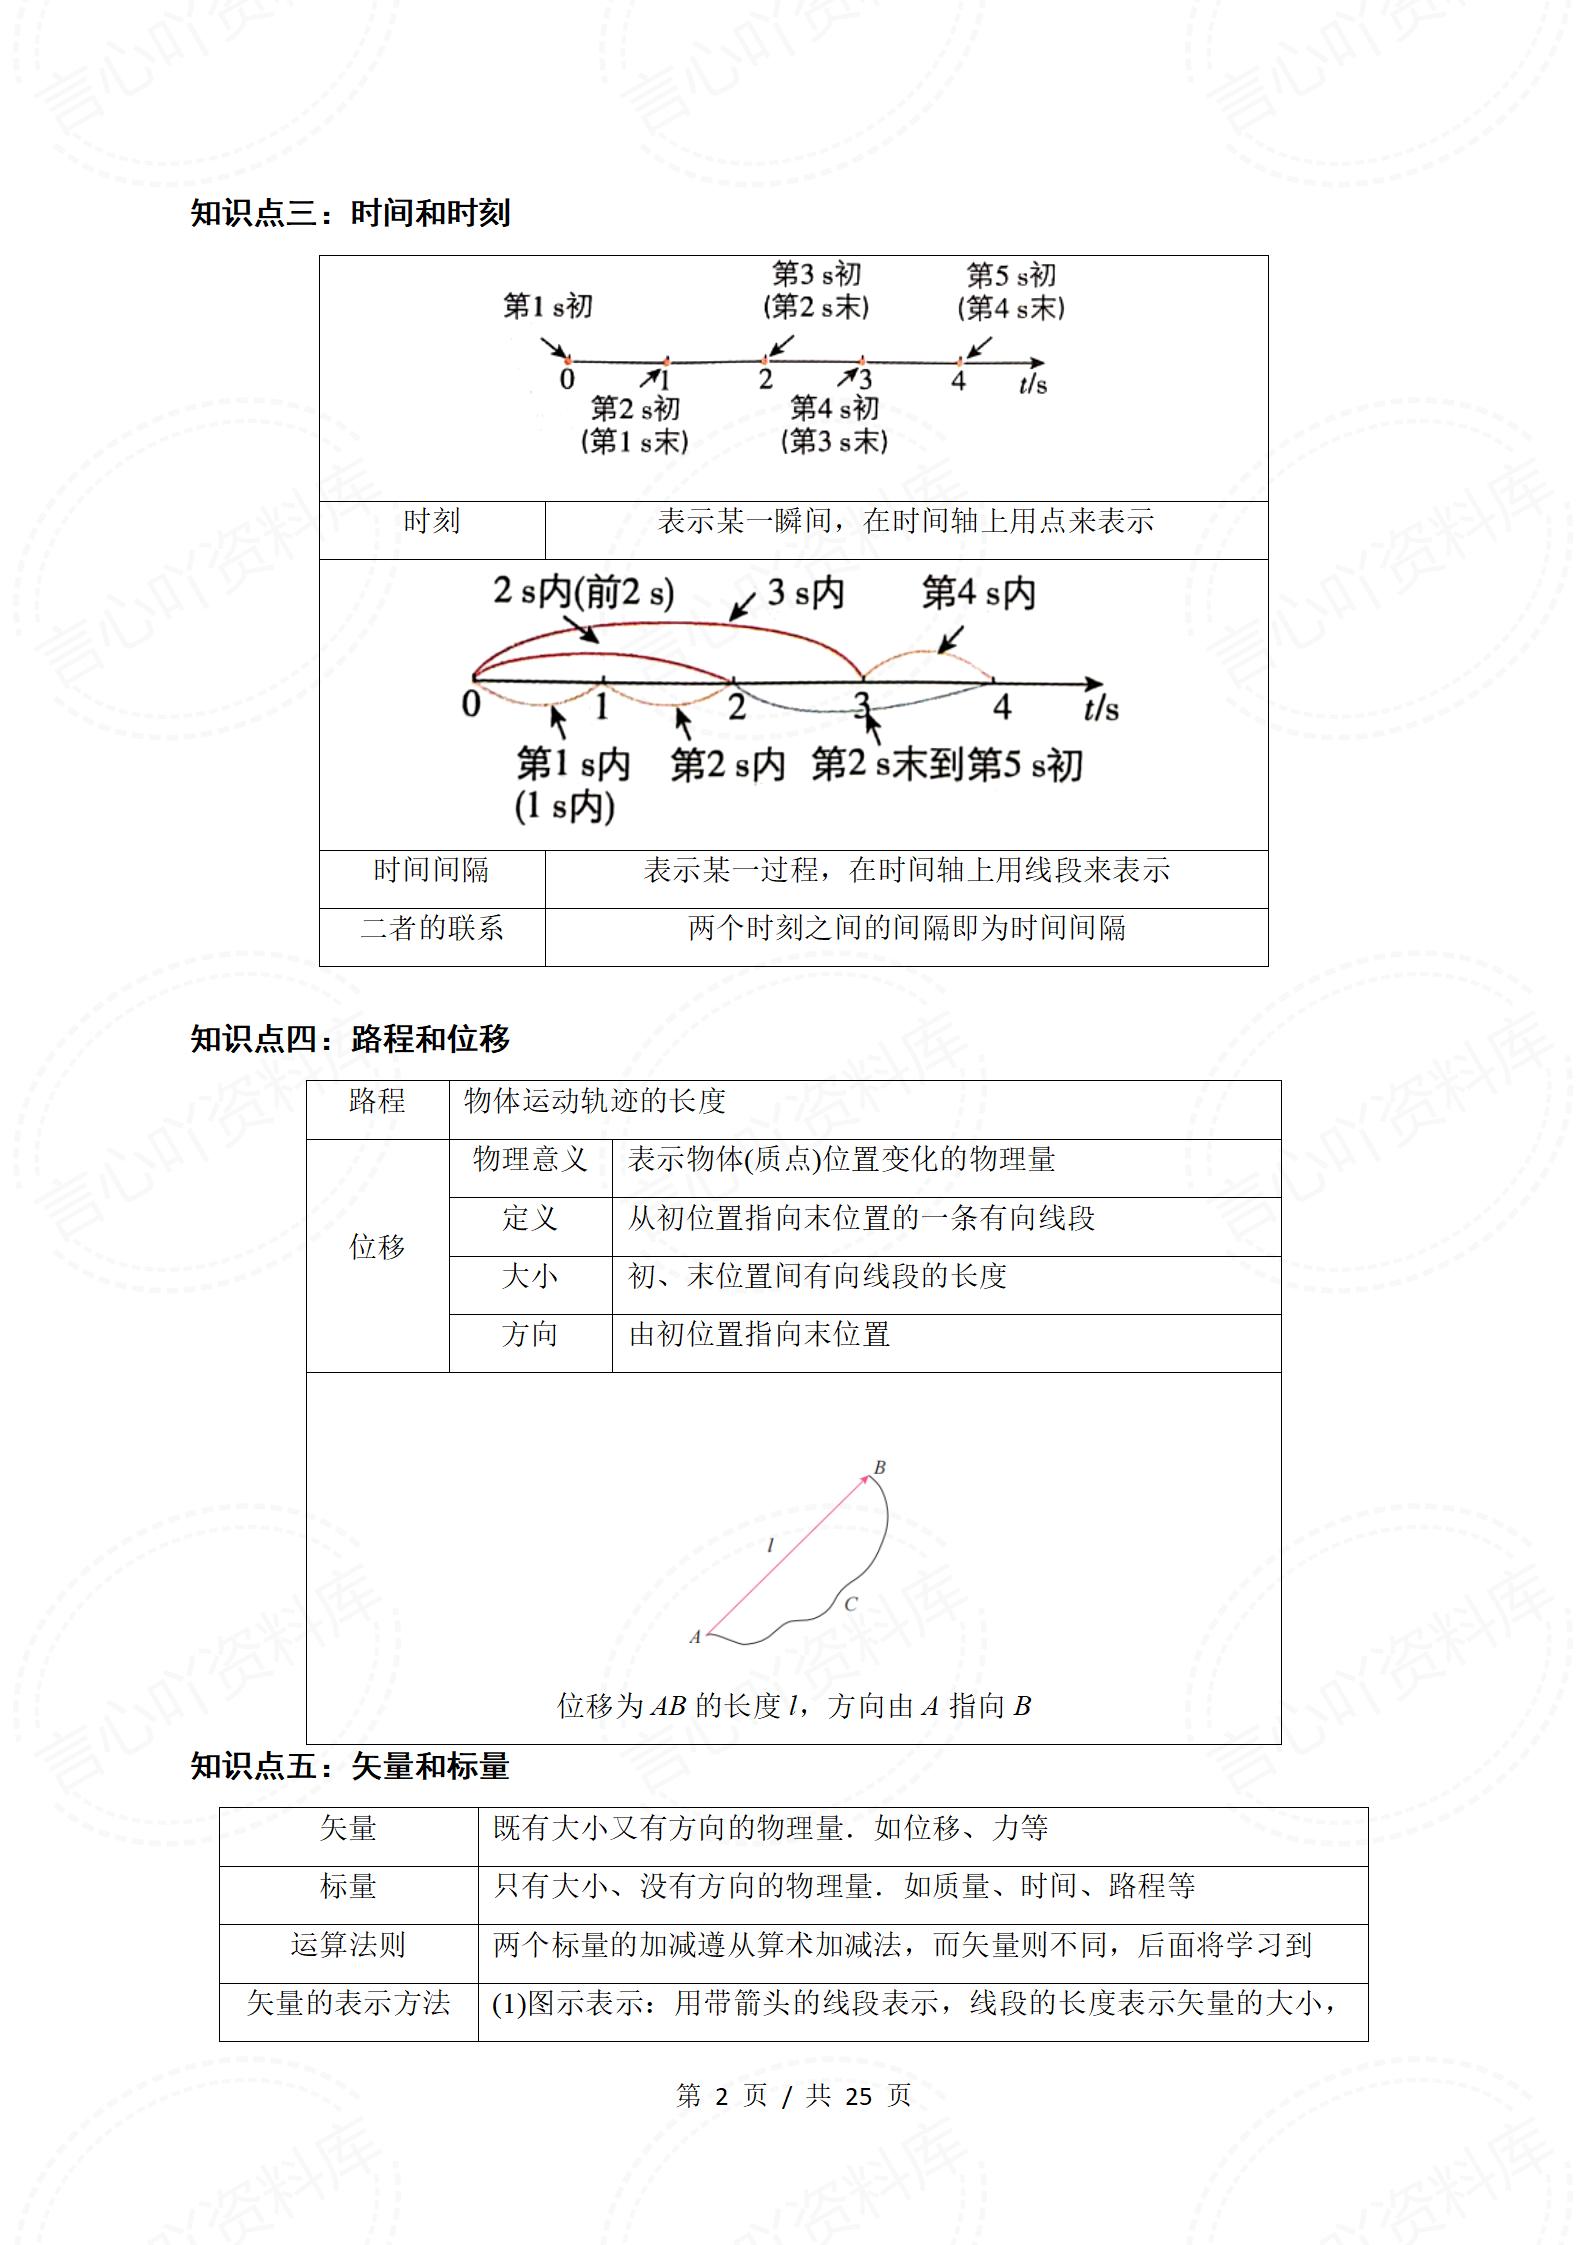 知识点三：时间和时刻
第3 s初
(第2 s末)
第5 s初
(第4 s末)
第1 s初
0 1 2 3 4 t/s
第2 s初
(第1 s末)
第4 s初
(第3 s末)
时刻 表示某一瞬间，在时间轴上用点来表示
2 s内(前2 s) 3 s内 第4 s内
0 1 2 3 4 t/s
第1 s内 第2 s内 第2 s末到第5 s初
(1 s内)
时间间隔 表示某一过程，在时间轴上用线段来表示
二者的联系 两个时刻之间的间隔即为时间间隔
知识点四：路程和位移
路程 物体运动轨迹的长度
位移
物理意义 表示物体(质点)位置变化的物理量
定义 从初位置指向末位置的一条有向线段
大小 初、末位置间有向线段的长度
方向 由初位置指向末位置
B
l
C
A
位移为 AB 的长度 l，方向由 A 指向 B
知识点五：矢量和标量
矢量 既有大小又有方向的物理量．如位移、力等
标量 只有大小、没有方向的物理量．如质量、时间、路程等
运算法则 两个标量的加减遵从算术加减法，而矢量则不同，后面将学习到
矢量的表示方法 (1)图示表示：用带箭头的线段表示，线段的长度表示矢量的大小，
第 2 页 / 共 25 页
言心吖资料库